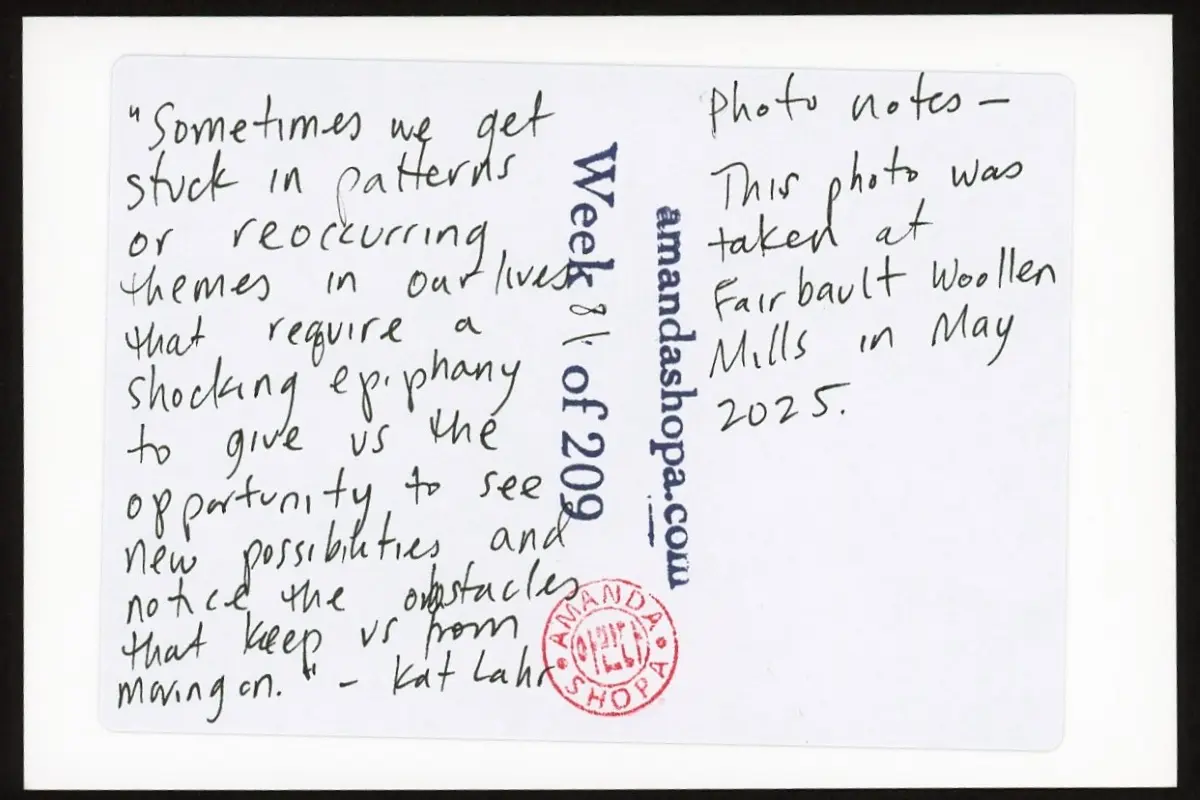 "Sometimes we get
stuck in patterns
or reoccurring
themes in our lives
that require a
shocking epiphany
to give us the
opportunity to see
new possibilities and
notice the obstacles
that keep us from
moving on." - Kat Lahr
Week 81 of 209
amandashopa.com
AMANDA
SHOPA
Photo notes —
This photo was
taken at
Fairbault Woollen
Mills in May
2025.